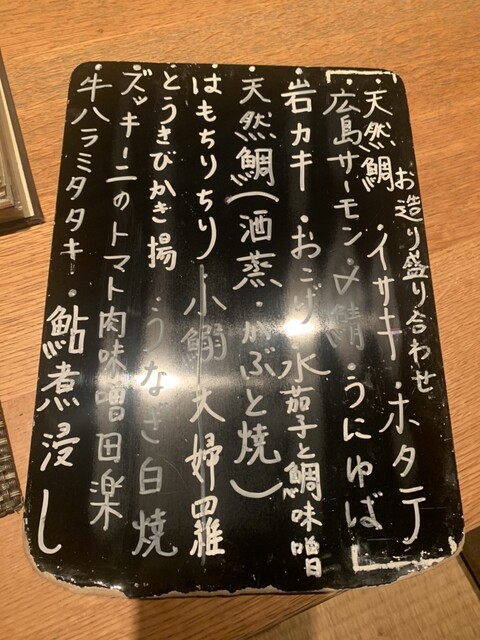 お造り盛り合わせ
・天然鯛・イサキ・ホタテ
広島サーモン・〆鯖・うにゆば
・岩カキ・おこげ水茄子と鯛味噌
・天然鯛(酒蒸・かぶと焼)
・はもちりちり小鰯天婦羅
・とうきびかき揚・うなぎ白焼
・ズッキーニのトマト肉味噌田楽
・牛ハラミタタキ・鮎煮浸し